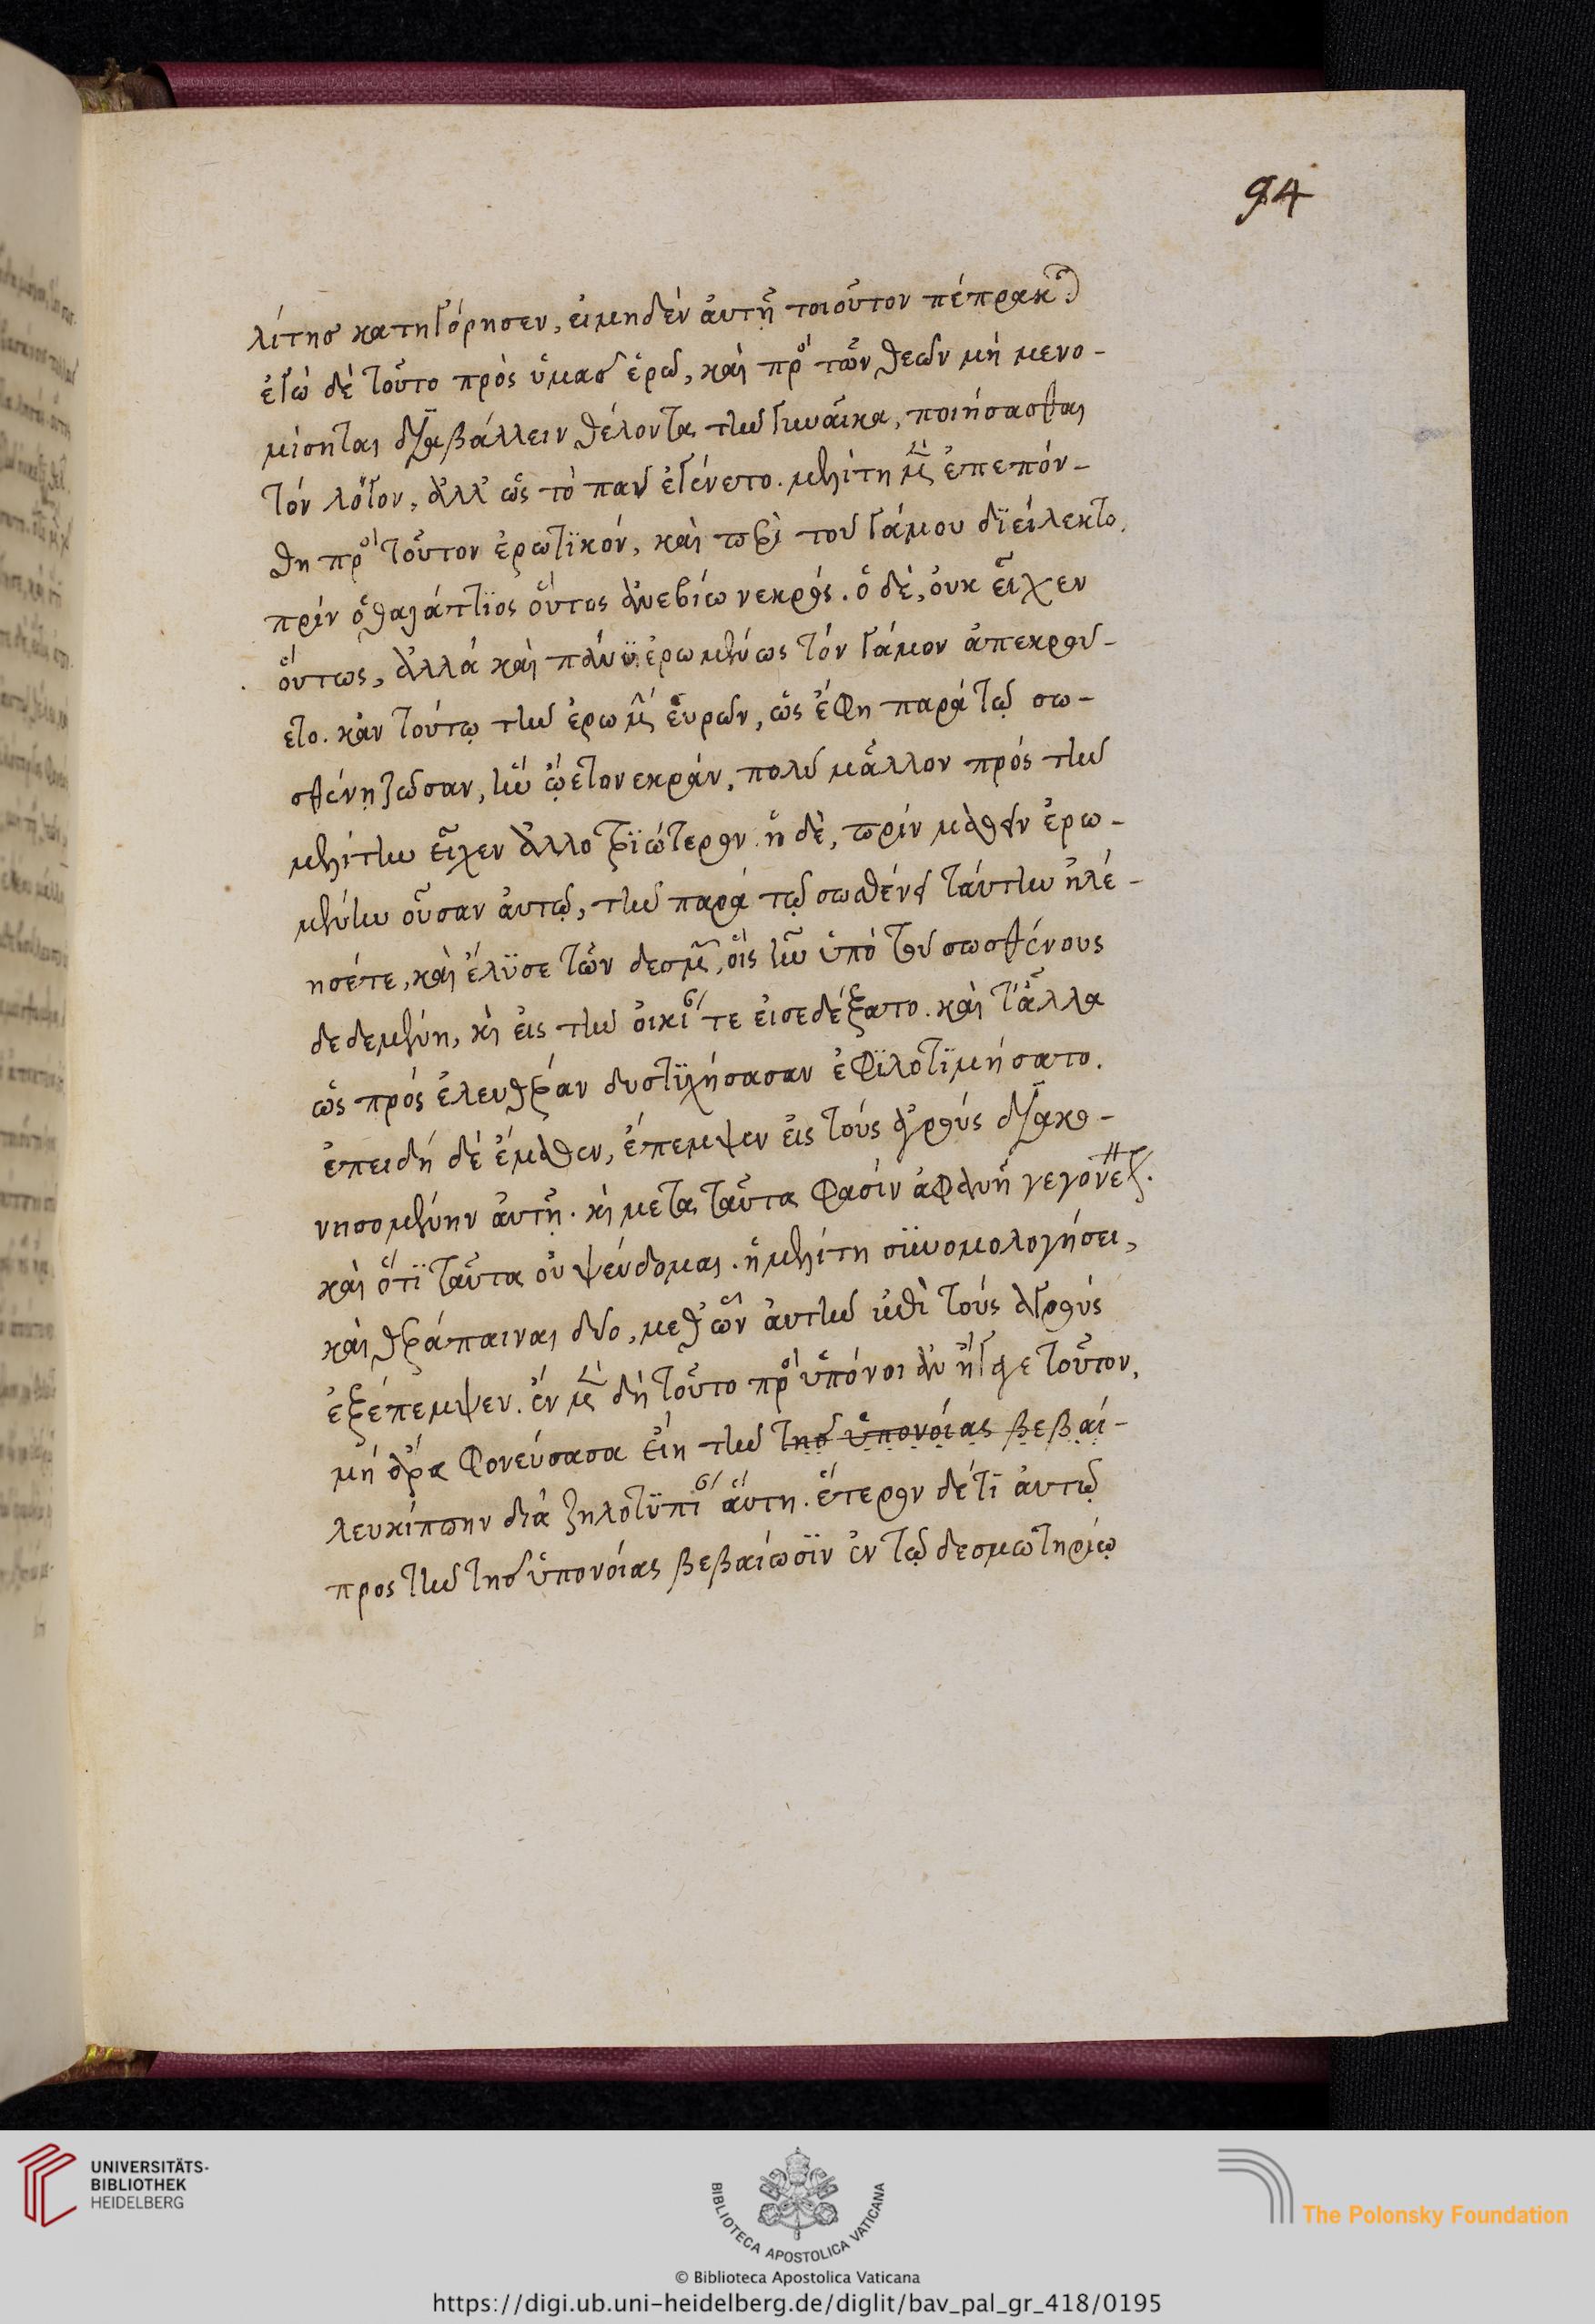 λίτησ κατηγόρησεν, εἰμηδὲν ἀυτῆ τοιοῦτον πέπρακται
ἐγὼ δὲ τοῦτο πρὸς ὑμασ ἐρῶ, καὶ πρὸς τῶν θεῶν μή μενο-
μίσηται διαβάλλειν θέλοντα τὴν γυναῖκα, ποιήσασθαι
τόν λόγον, ἀλλ' ὡς τὸ παν ἐγένετο. μελίτη μὲν ἐπεπόν-
θη πρὸς τοῦτον ἐρωτϊκόν, καὶ περὶ του γάμου δϊείλεκτο.
πρίν ὁ θαλάττϊος οὗτος ἀνεβίω νεκρός. ὁ δέ, ὀυκ εἶχεν
ὅυτως, ἀλλά καὶ πάνυ ἐρωμένως τόν γάμον ἀπεκρού-
ετο. κἀν τούτῳ τὴν ἐρωμένην εὑρών, ὡς ἔφη παρά τῷ σω-
σθένη ζῶσαν, ἣν ᾤετο νεκράν, πολύ μᾶλλον πρός τὴν
μελίτην εἶχεν ἀλλοτρϊώτερον. ἡ δὲ, πρίν μαθεῖν ἐρω-
μένην οὖσαν ἀυτῷ, τὴν παρά τῷ σωσθένει ταύτην ἠλέ-
ησέτε, καὶ ἔλϋσε τῶν δεσμῶν, οἷς ἦν ὑπὸ τοῦ σωσθένους
δεδεμένη, καὶ εἰς τὴν ὀικίαν τε εἰσεδέξατο. καὶ τἆλλα
ὡς πρός ἐλευθέραν δυστϋχήσασαν ἐφϊλοτϊμήσατο.
ἐπειδή δὲ ἔμαθεν, ἔπεμψεν εἰς τούς ἀγρούς διακο-
νησομένην ἀυτῇ. καὶ μετα ταῦτα φασίν ἀφανῆ γεγονέναι.
καὶ ὅτϊ ταῦτα οὐ ψεύδομαι. ἡ μελίτη συνομολογήσει,
καὶ θεράπαιναι δύο, μεθ' ὧν ἀυτὴν ἐπὶ τούς ἀγρούς
ἐξέπεμψεν. ἕν μὲν δὴ τοῦτο πρὸς ὑπόνοιαν ἤγαγε τοῦτον,
μή ἄρα φονεύσασα εἴη τὴν τησ ὑπονοίας βεβαί-
λευκίππην διά ζηλοτϋπίαν ἅυτη. ἕτερον δέτϊ ἀυτῷ
προς τὴν τησ ὑπονοίας βεβαίωσϊν ἐν τῷ δεσμωτηρίῳ
94
UNIVERSITÄTS-
BIBLIOTHEK
HEIDELBERG
BIBLIOTECA APOSTOLICA VATICANA
The Polonsky Foundation
© Biblioteca Apostolica Vaticana
https://digi.ub.uni-heidelberg.de/diglit/bav_pal_gr_418/0195